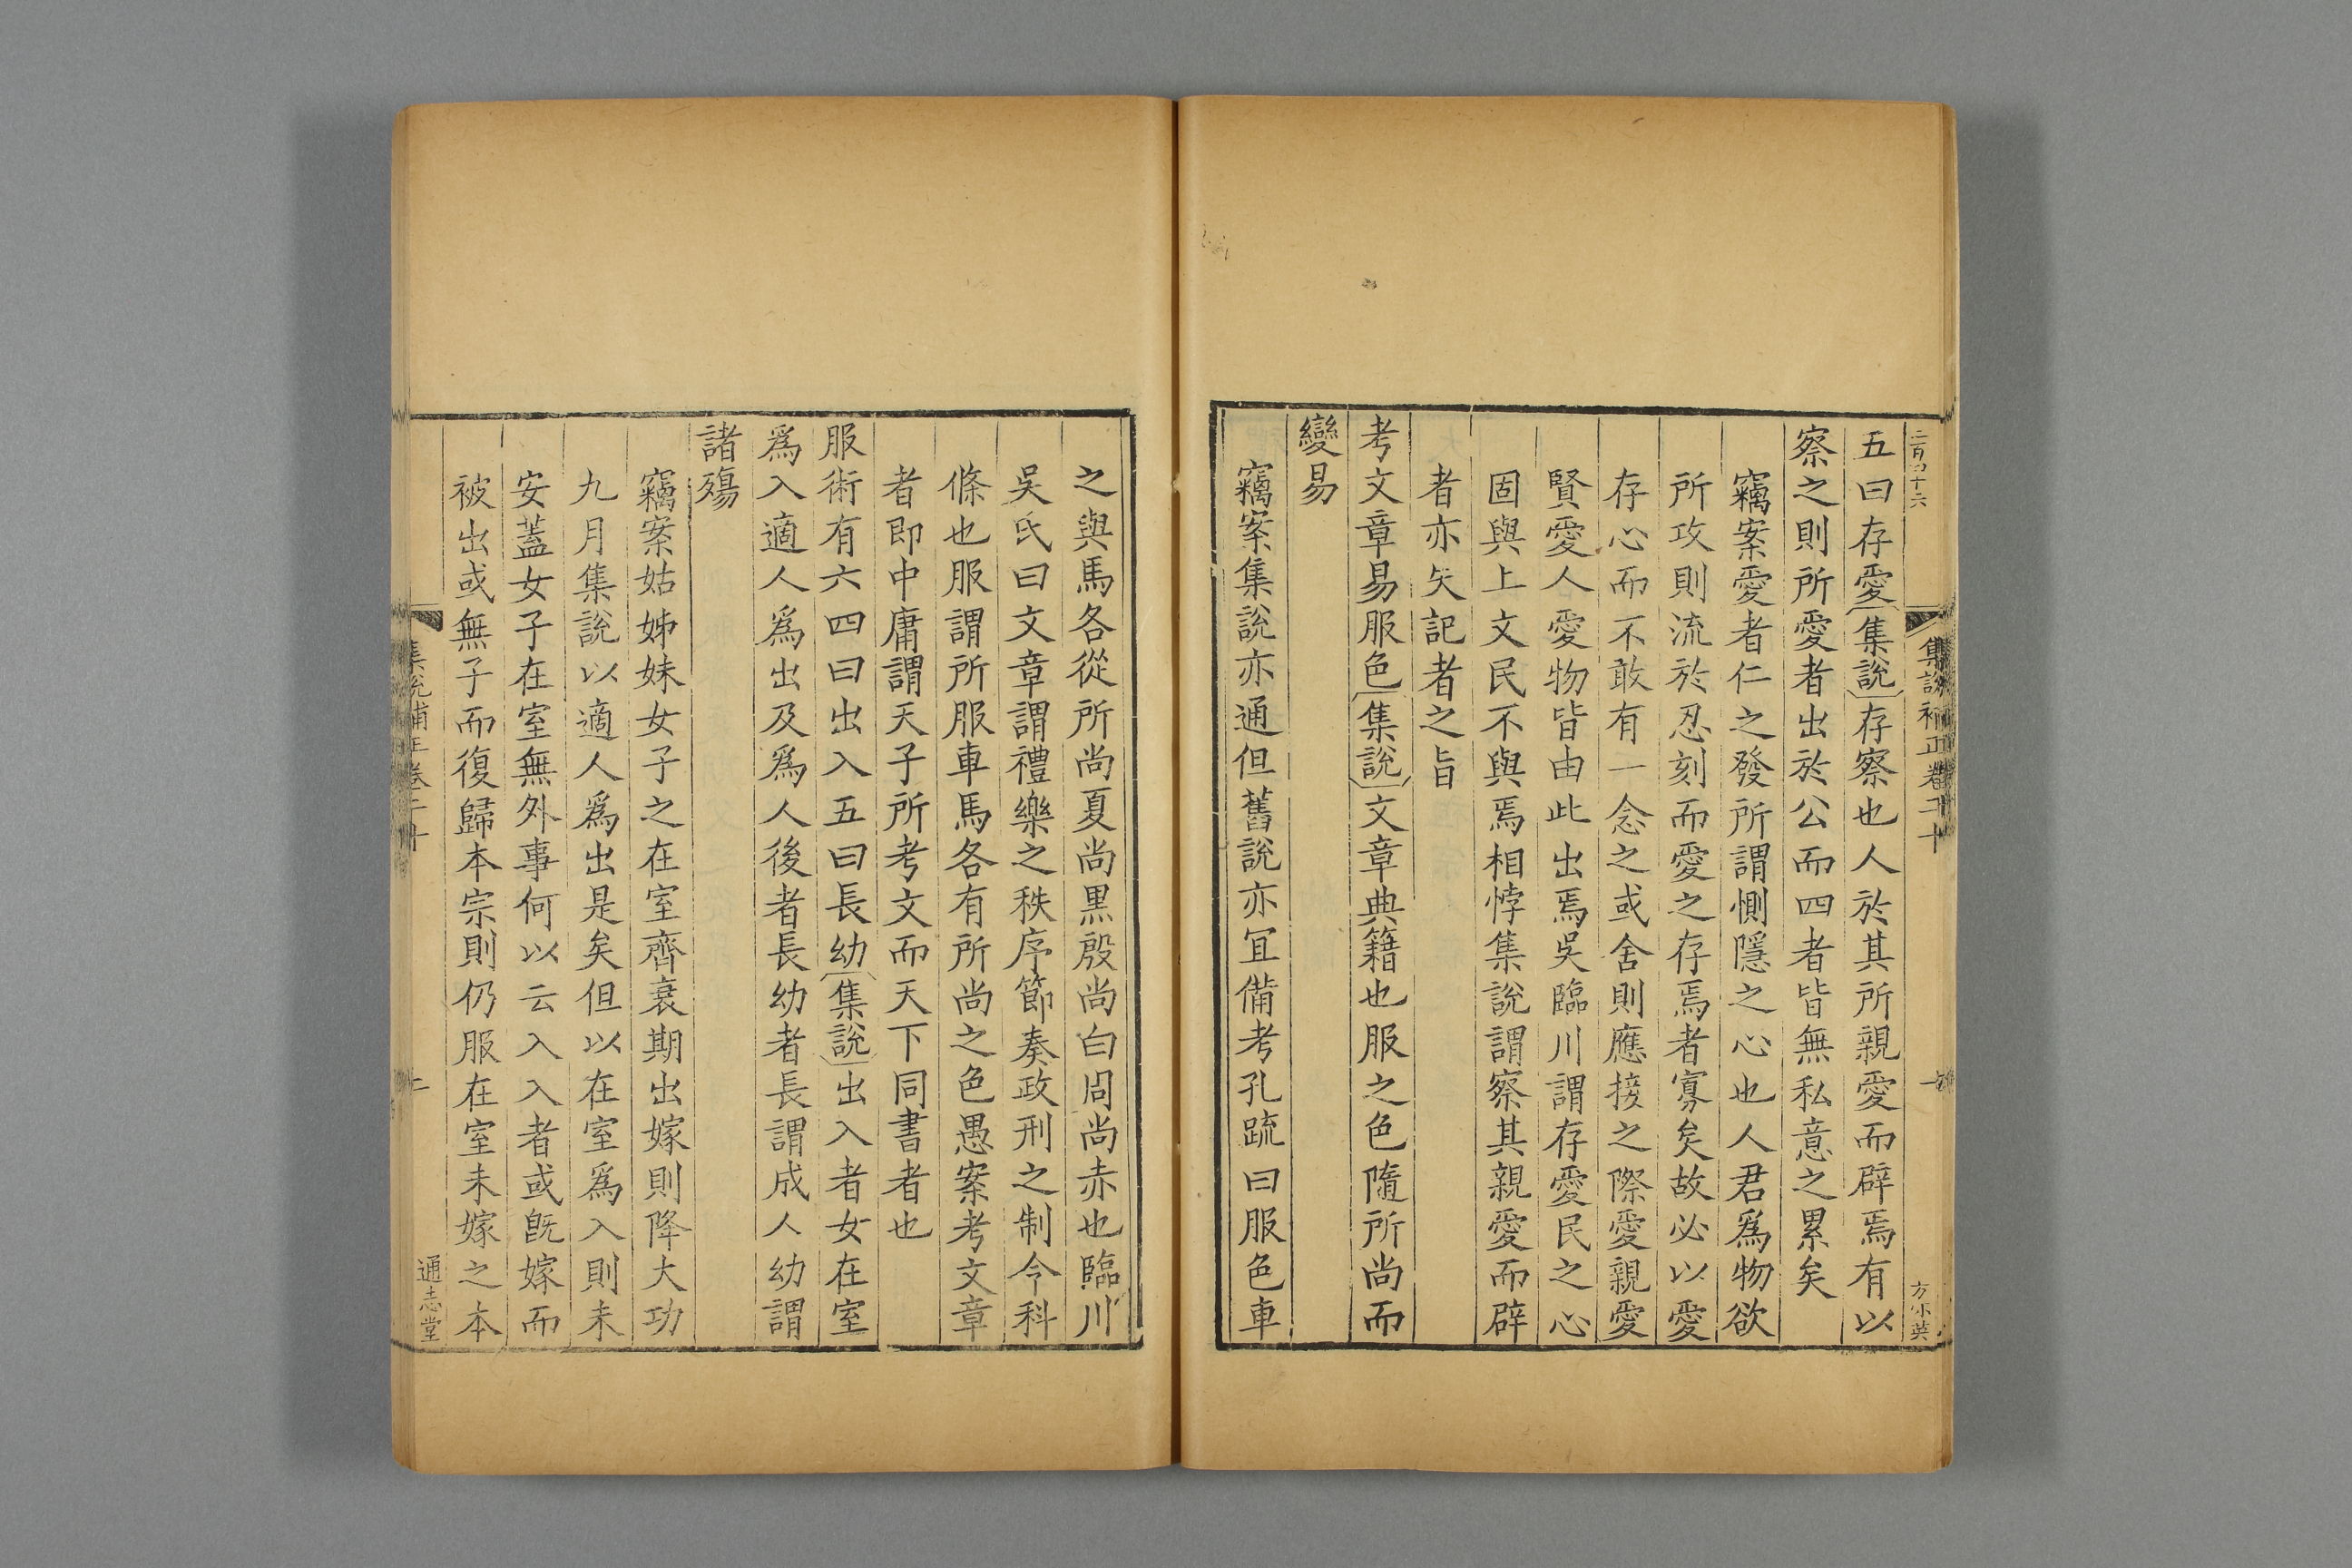 二百四十六
集說補正卷二十
一
五曰存愛〔集說〕存察也人於其所親愛而辟焉有以
察之則所愛者出於公而四者皆無私意之累矣
竊案愛者仁之發所謂惻隱之心也人君爲物欲
所攻則流於忍刻而愛之存焉者寡矣故必以愛
存心而不敢有一念之或舍則應接之際愛親愛
賢愛人愛物皆由此出焉吳臨川謂存愛民之心
固與上文民不與焉相悖集說謂察其親愛而辟
者亦失記者之旨
考文章易服色〔集說〕文章典籍也服之色隨所尚而
變易
竊案集說亦通但舊說亦宜備考孔疏曰服色車
之與馬各從所尚夏尚黑殷尚白周尚赤也臨川
吳氏曰文章謂禮樂之秩序節奏政刑之制令科
條也服謂所服車馬各有所尚之色愚案考文章
者即中庸謂天子所考文而天下同書者也
服術有六四曰出入五曰長幼〔集說〕出入者女在室
爲入適人爲出及爲人後者長幼者長謂成人幼謂
諸殤
竊案姑姊妹女子之在室齊衰期出嫁則降大功
九月集說以適人爲出是矣但以在室爲入則未
安蓋女子在室無外事何以云入入者或旣嫁而
被出或無子而復歸本宗則仍服在室未嫁之本
集說補正卷二十
二
通志堂